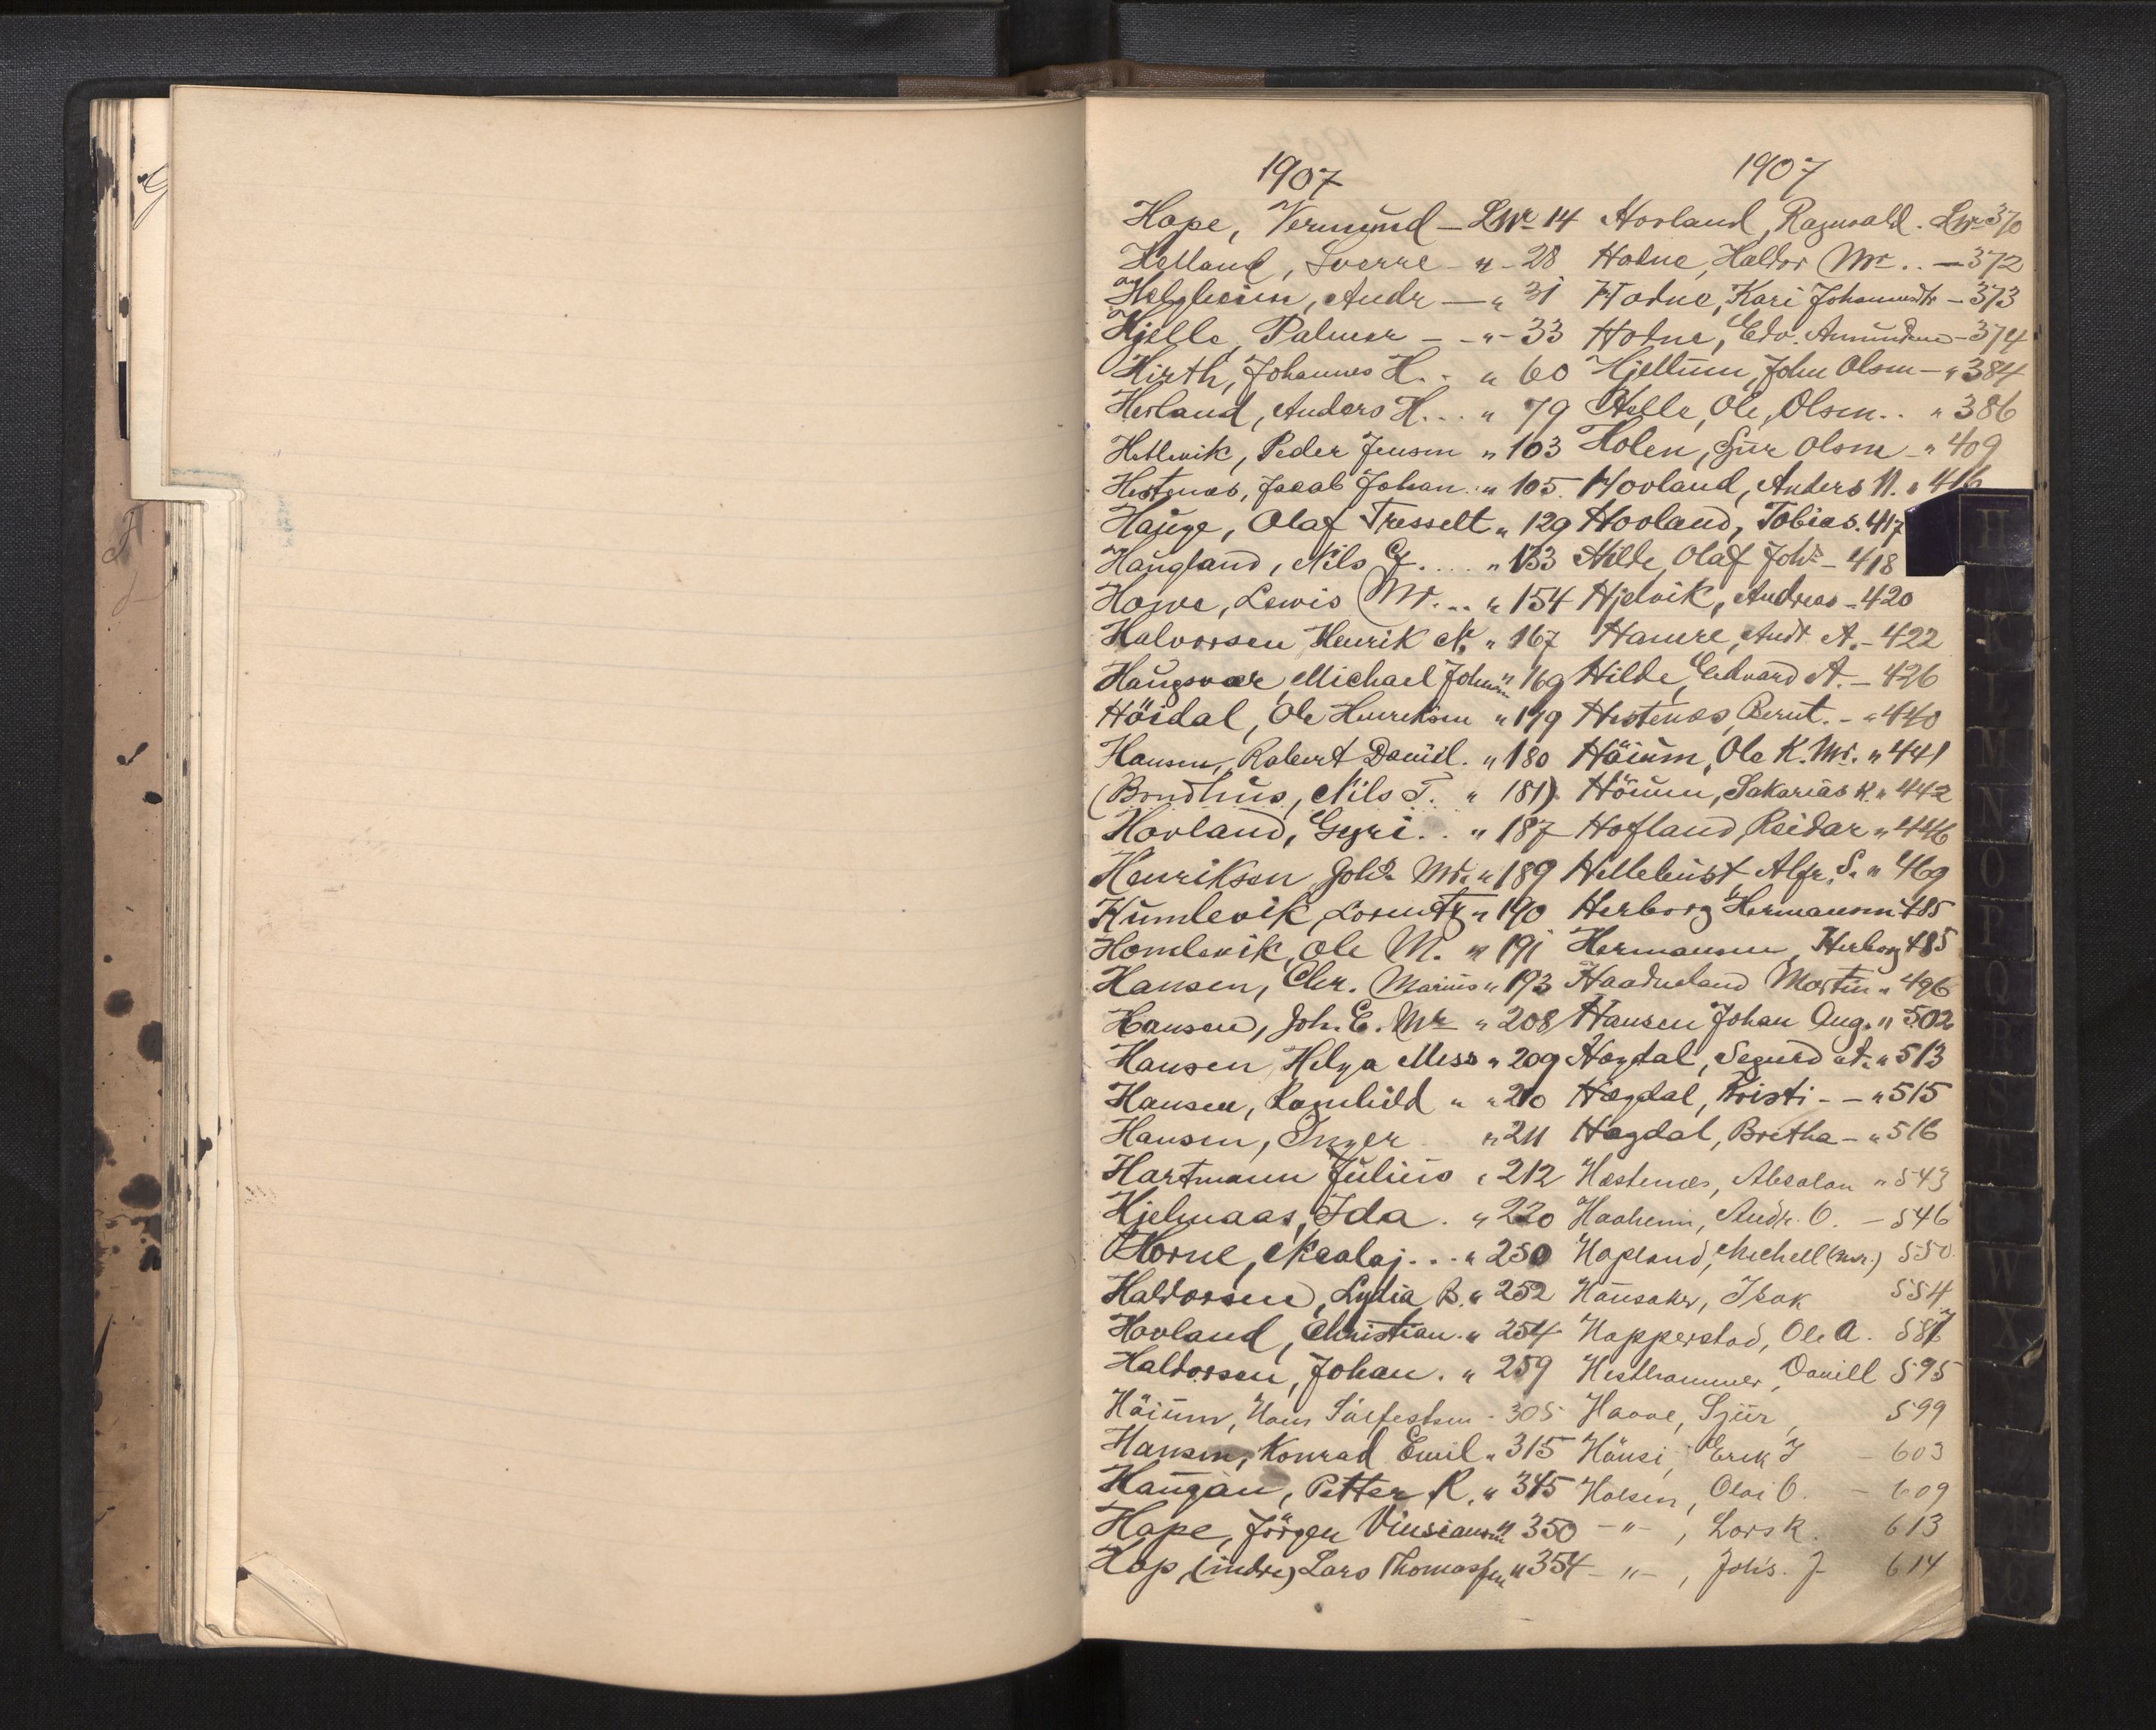 1907
Hope, Vermund - LNr 14
Helland, Sverre - " - 28
Helgheim, Andr - " 31
Hjelle, Palmer - - " - 33
Hirth, Johannes H. - " 60
Herland, Anders H. .. " 79
Hetlevik, Peder Jensen " 103
Hestenes, Jacob Johan. " 105.
Hauge, Olaf Tresselt " 129
Haugland, Nils G. ... " 133
Howe, Lewis Mr. .. " 154
Halvorsen Henrik N. " 167
Haugsvær, Michael Johnsen " 169
Höidal, Ole Henriksen " 179
Hansen, Robert Daniel. " 180
(Bondhus, Nils T. " 181).
Hovland, Gyri. . " 187
Henriksen Johs. Mr. " 189
Humlevik, Lorentz " 190
Homlevik, Ole M. " 191
Hansen, Chr. Marius " 193
Hansen, Joh. E. Mr " 208
Hansen, Helga Miss " 209
Hansen, Ragnhild " " 210
Hansen, Inger " 211
Hartmann Julius " 212
Hjelmaas, Ida . " 220
Horne, Nicolaj. . . " 250
Haldorsen, Lydia B. " 252
Hovland, Christian. " 254
Haldorsen, Johan. " 259
Höium, Hans Sjulfestsen - 305
Hansen, Konrad Emil " 315
Haugan, Petter R. " 345
Hope, Jörgen " 350
Hop, (indre) Lars Thomassen " 354
1907
Hovland, Ragnvald. LNr 370
Hodne, Haldor Mr. . - 372
Hodne, Kari Johannesdtr - 373
Hodne, Edv. Amundsen - 374
Hjellum, John Olsen - " 384
Helle, Ole, Olsen. . " 386
Holen, Sjur Olsen - " 409
Hovland, Anders N. " 416
Hovland, Tobias. 417
Hilde, Olaf Johs - 418
Hjelvik, Andreas - 420
Hamre, Andr A. - 422
Hilde, Edvard A. - 426
Hestenes, Bernt. - " 440
Höium, Ole K. Mr. " 441
Höium, Sakarias K. " 442
Hofland, Reidar " 446
Hillebust Alfr. S. " 469
Herborg Hermansen 485
Hermansen, Herborg 485
Haadneland Martin " 496
Hansen Johan Aug. " 502
Høgdal, Segurd A. " 513
Høgdal, Kristi - - " 515
Høgdal, Britha - " 516
Hestenes, Absalon " 543
Haaheim, Andr. O. - 546
Hopland, Michell (mr.) 550
Hausaker, Isak 554
Hopperstad, Ole A. 587
Hesthammer, Daniell 595
Hovve, Sjur, 599
Hänsi, Erik J - 603
Holsen, Olai O. - 609
- " - , Lars K. 613
- " - , Johs. J 614
F
H
K
L
M
N
O
P
Q
R
S
T
W
X